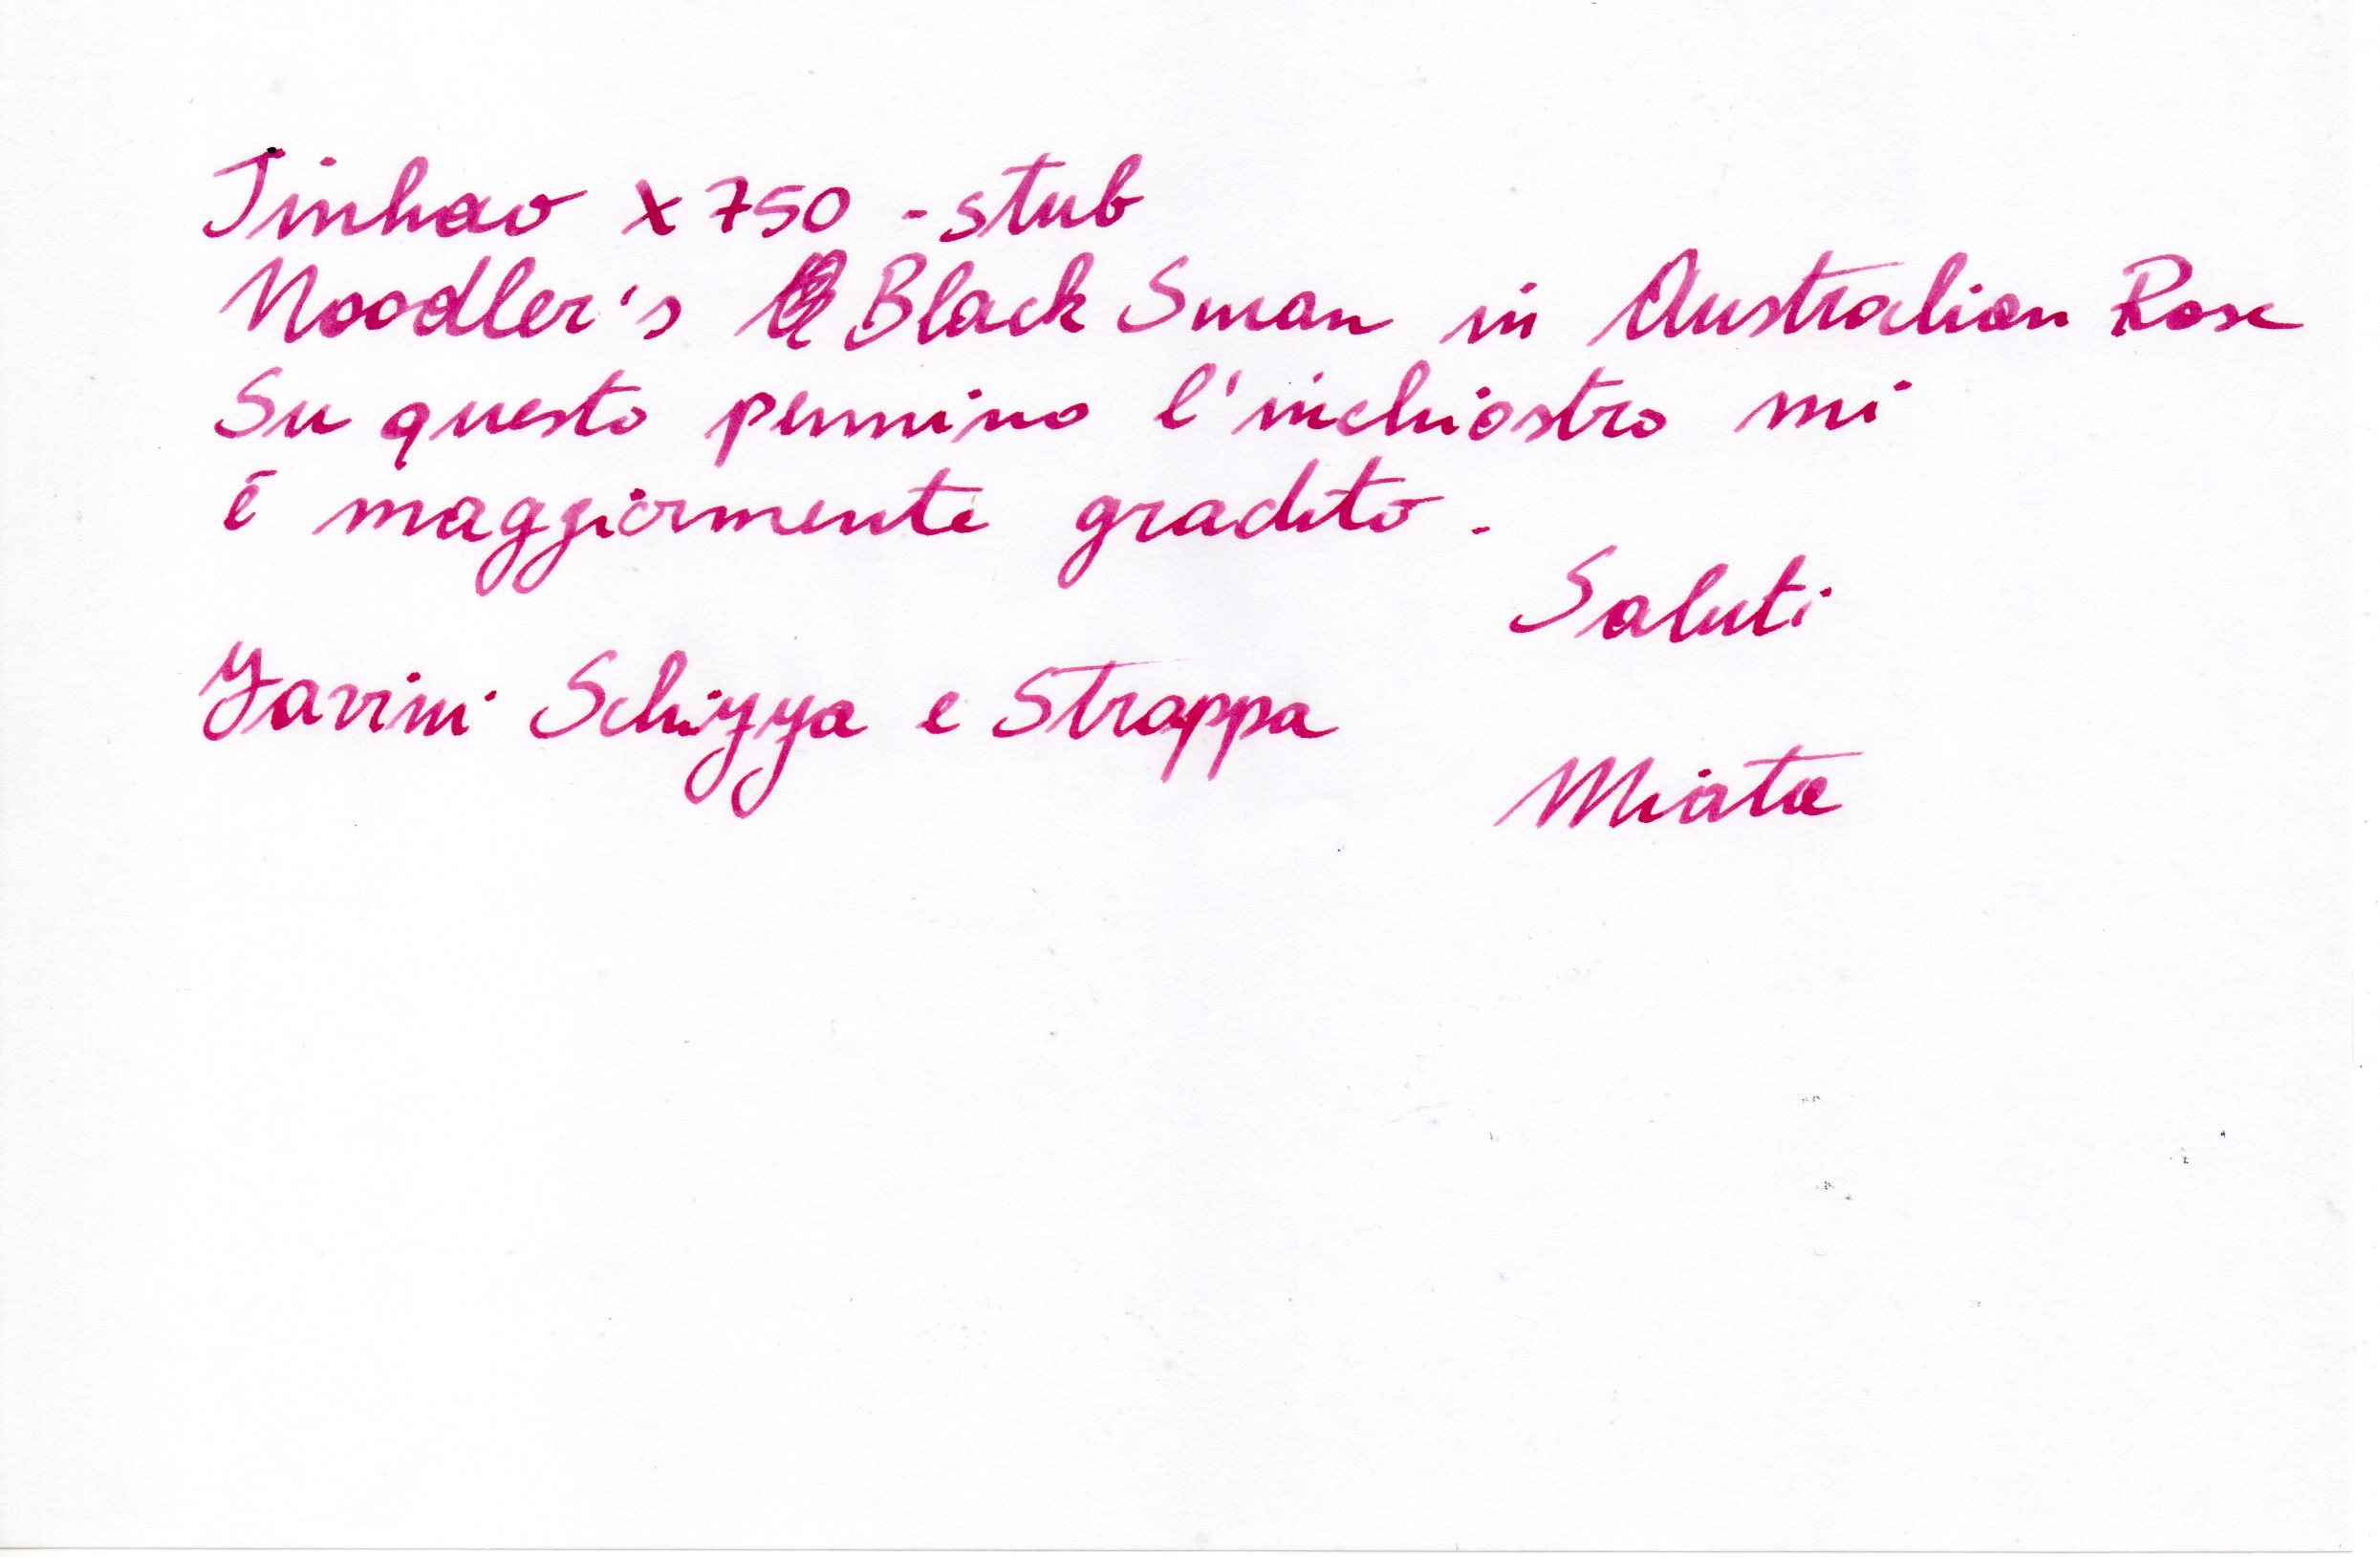 Jinhao X750 - stub
Noodler's Black Swan in Australian Rose
Su questo pennino l'inchiostro mi
è maggiormente gradito.
Saluti
Yavimi Schizza e Strappa
Miata